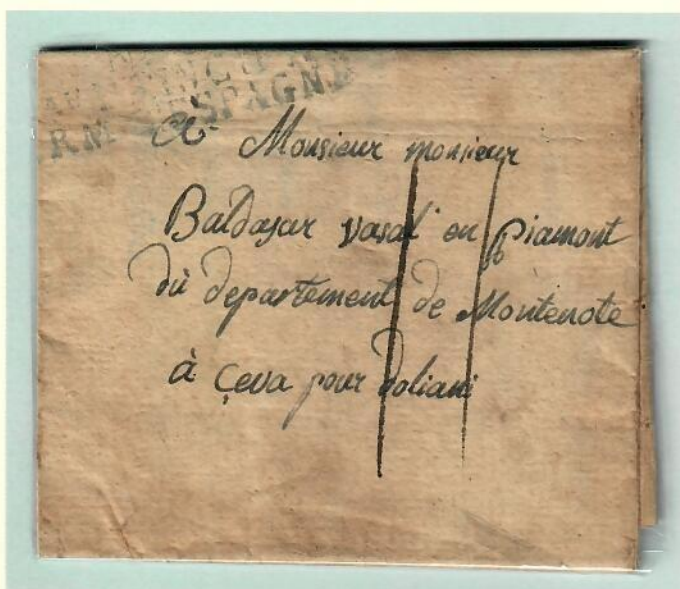 ESPAGNE
A Monsieur monsieur
Baldasar vasal en piamont
dù departement de Montenote
à Çeva pour doliani